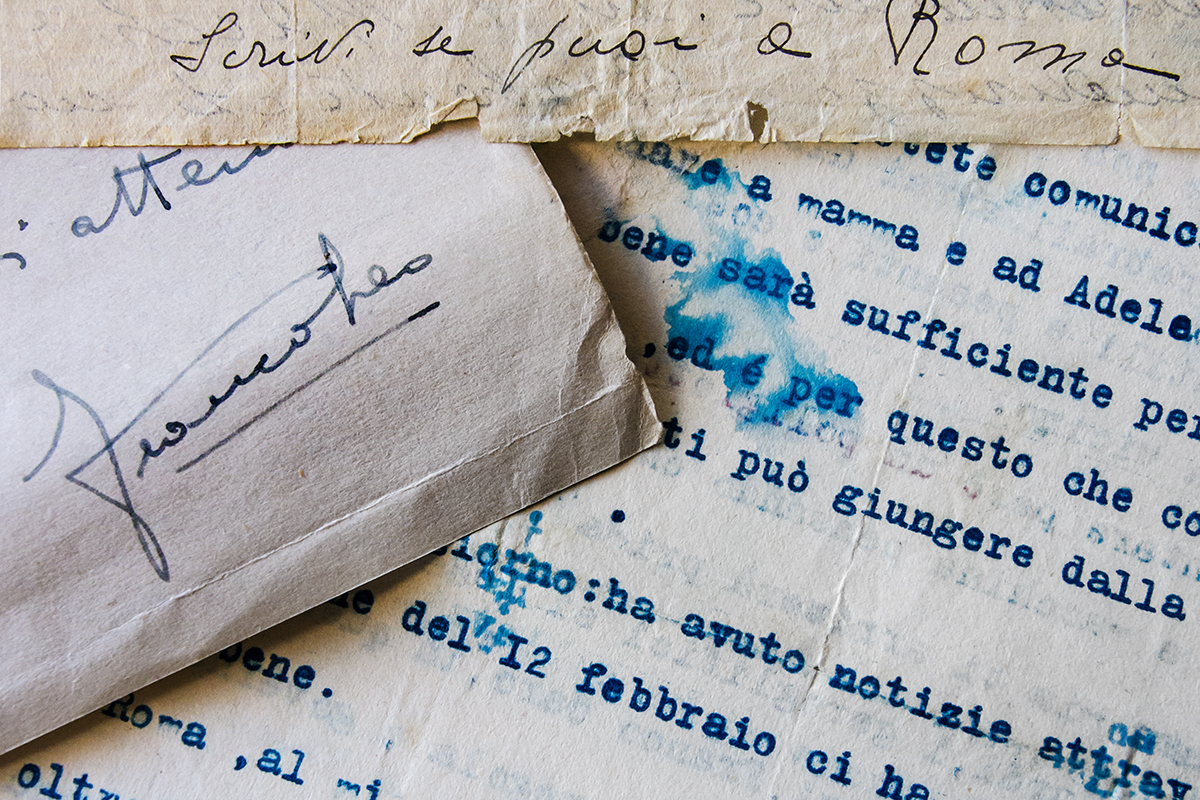 Scrivi se puoi a Roma
atten
Francohes
comunic
a mamma e ad Adela
bene sarà sufficiente per
,ed é per questo che co
ti può giungere dalla
giorno:ha avuto notizie attrav
del I2 febbraio ci ha
bene.
Roma ,al mi
oltre